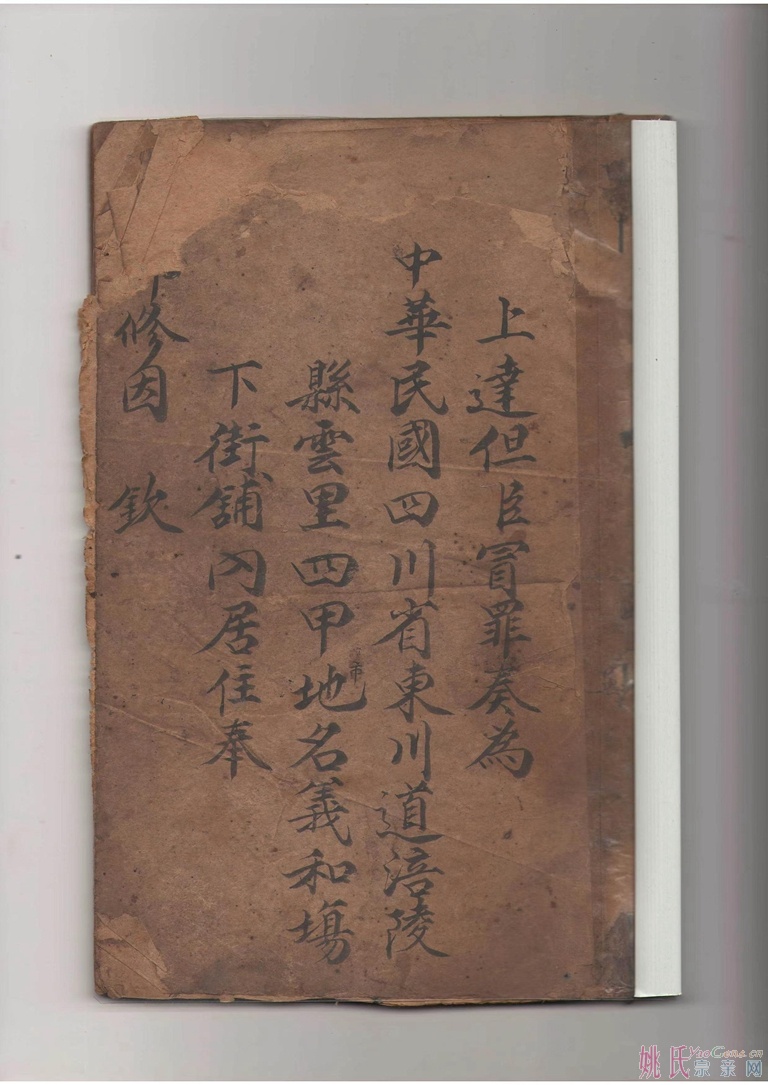 上達但臣冐罪奏為
中華民國四川省東川道涪陵
縣雲里四甲地名義和塲
市
下街舖內居住奉
修因 欽
姚氏宗亲网
YaoCome.cn